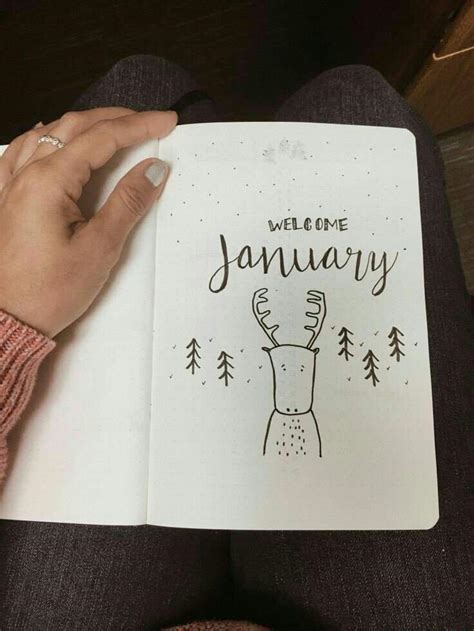 WELCOME
January